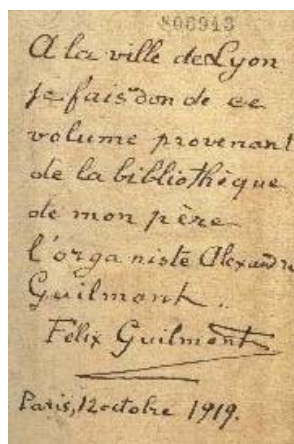 806943
A la ville de Lyon
je fais don de ce
volume provenant
de la bibliothèque
de mon père
l'organiste Alexandre
Guilmant.
Félix Guilmant
Paris, 12 octobre 1919.